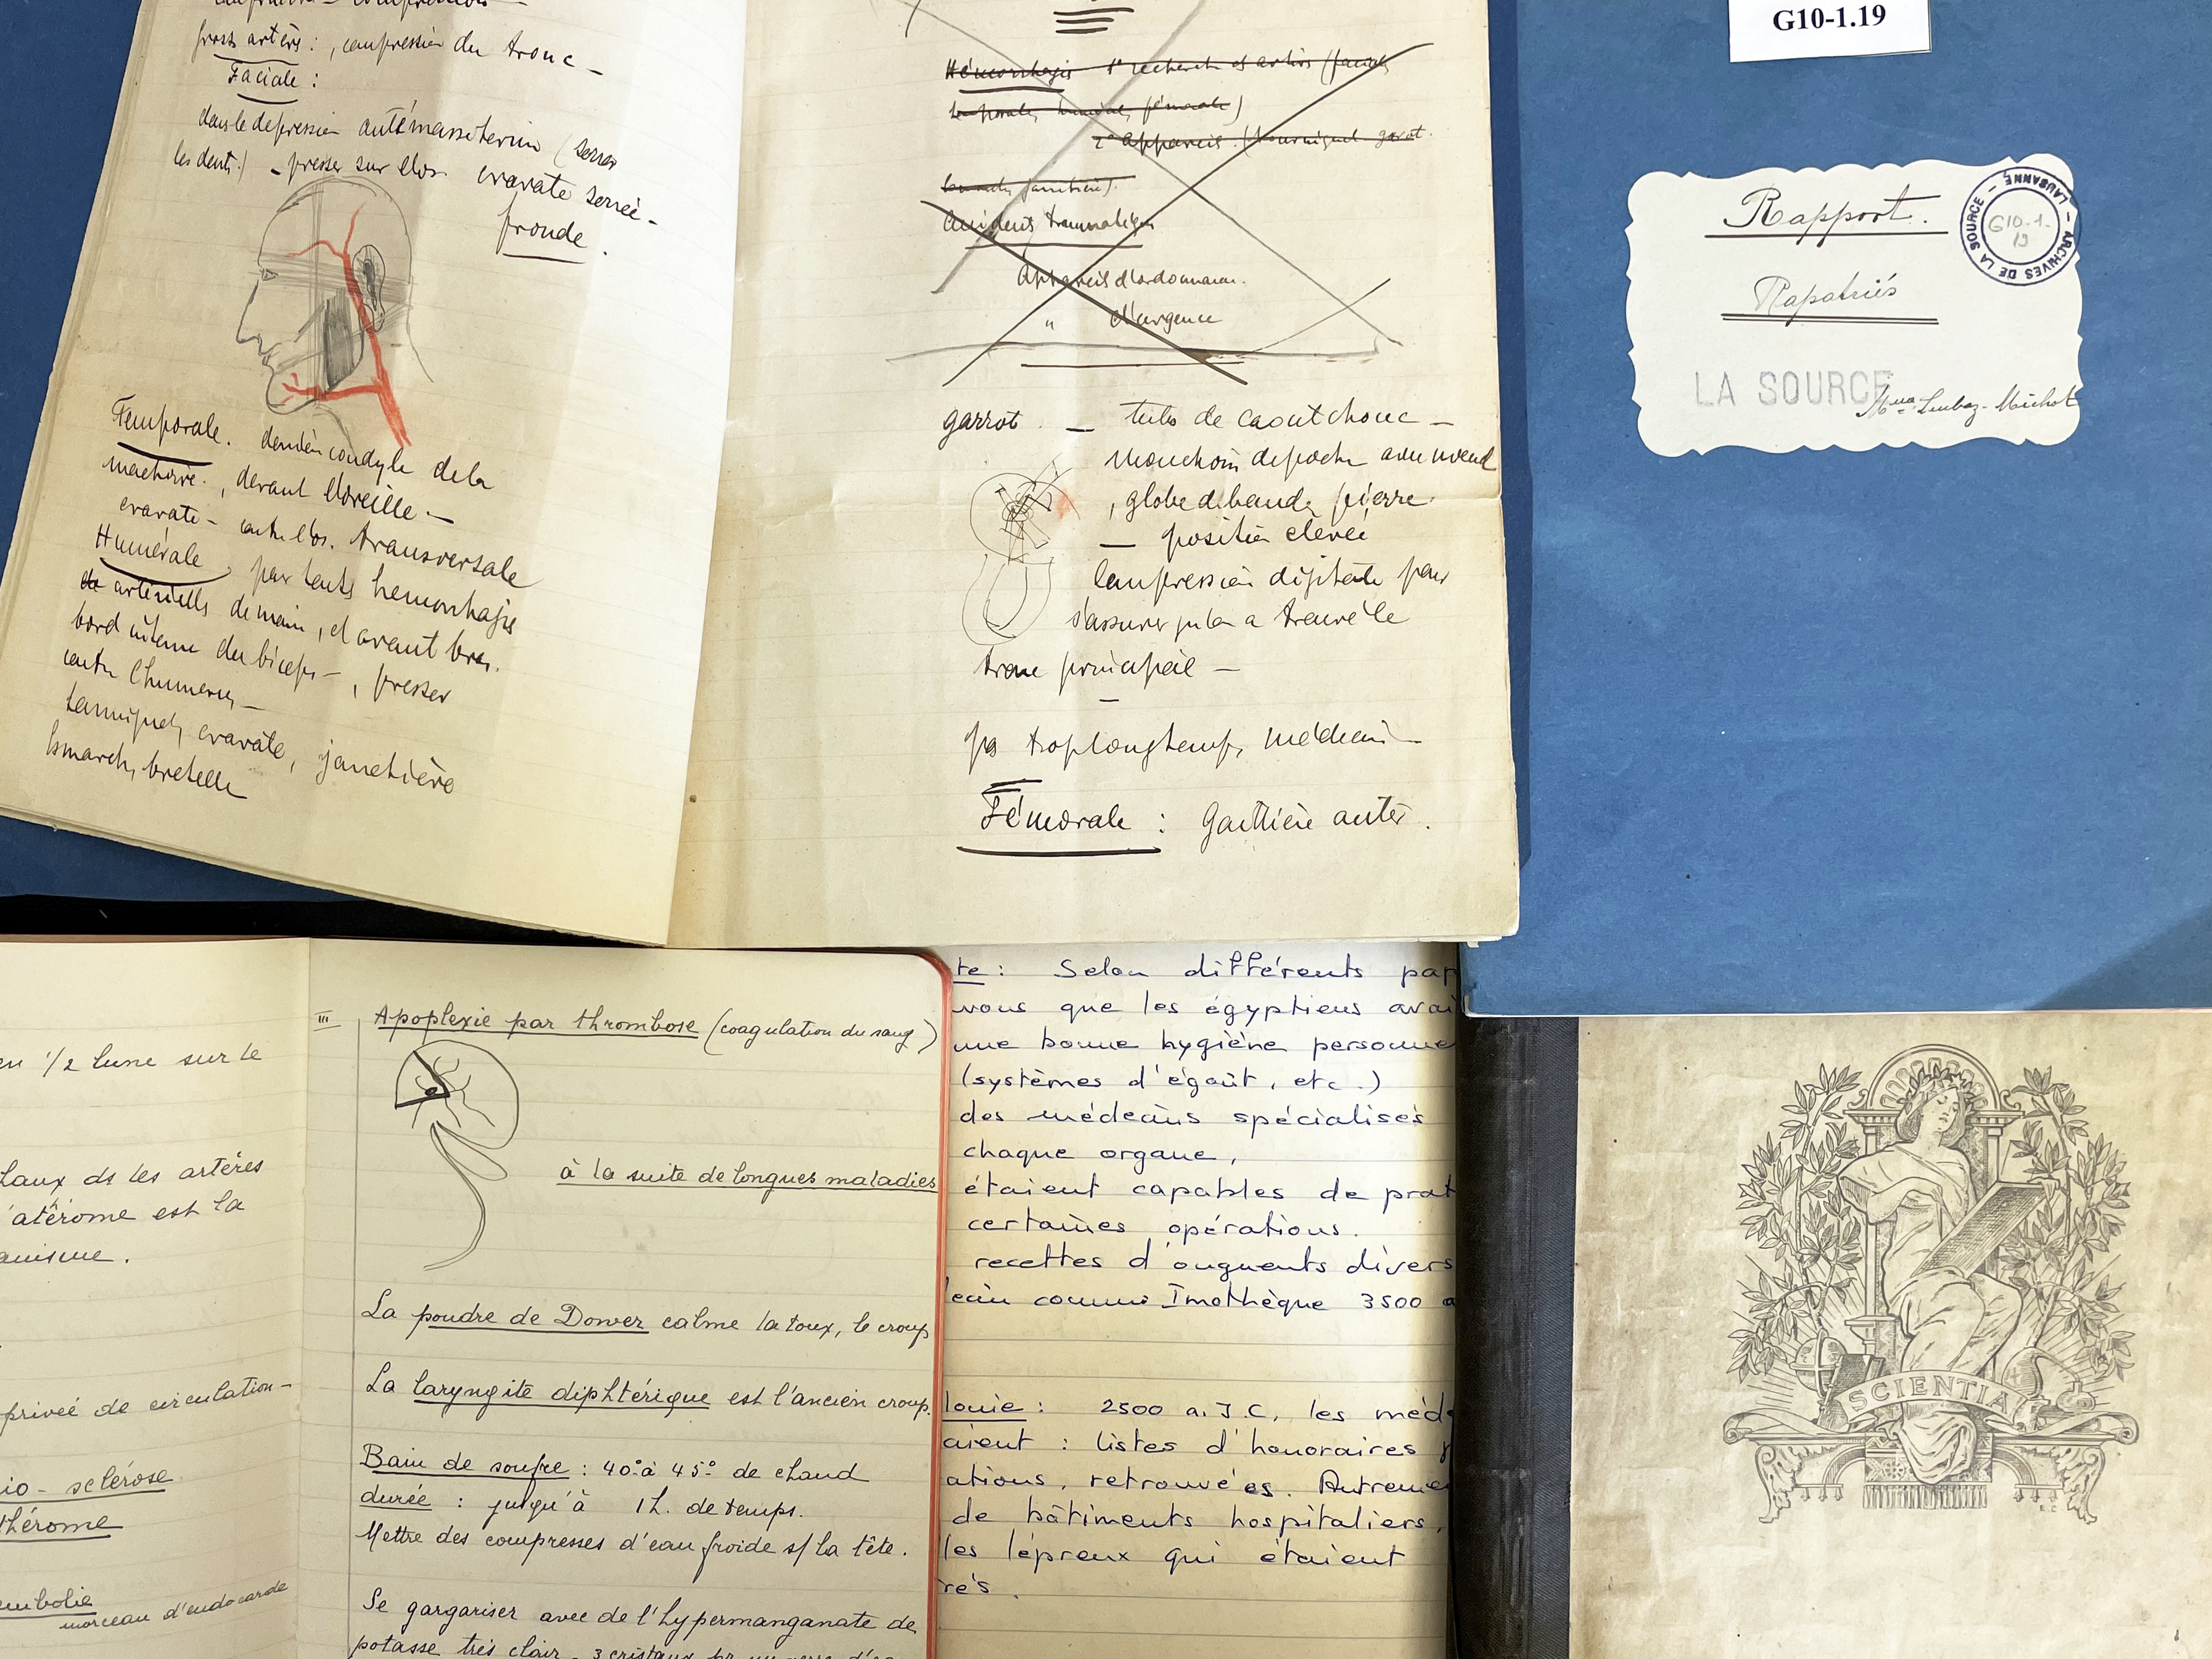 gross artères : , compression du tronc –
Faciale :
dans le depression antémasseterin (serrer
les dents) – presser sur l'os. cravate serrée –
fronde.
Temporale. derrière condyle de la
machoire. , devant l'oreille. –
cravate – contre l'os. transversale
Humérale, par toute hemorrhagie
artérielle de main, et avant bras.
bord interne du biceps – , presser
contre l'humerus –
cravate, jarretière
bretelle
Hémorrhagie 1° recherche
temporale, humérale, fémorale)
2° appareil (tourniquet garot
Accidents traumatiques
Appareil d'ordonnance.
" d'urgence
garrot – tube de caoutchouc –
mouchoir de poche avec nœud
, globe de bande, pierre.
– position elevée
Compression digitale pour
s'assurer qu'on a trouvé le
tronc principal –
–
pas trop longtemps, médecin –
Fémorale : Gouttière antér.
G10-1.19
Rapport.
Rapatriés
LA SOURCE
ARCHIVES DE LA SOURCE – LAUSANNE –
G10-1-
19
en 1/2 lune sur le
ds les artères
atérome est la
privée de circulation –
io-sclérose
thérome
embolie
morceau d'endocarde
III Apoplexie par thrombose (coagulation du sang)
à la suite de longues maladies
La poudre de Dower calme la toux, le croup
La laryngite diphtérique est l'ancien croup.
Bain de soufre : 40° à 45° de chaud
durée : jusqu'à 1 h. de temps.
Mettre des compresses d'eau froide s/ la tête.
Se gargariser avec de l'hypermanganate de
potasse très clair. 3 cristaux
te : Selon différents pap
vous que les égyptiens avai
une bonne hygiène personne
(systèmes d'égoût, etc.)
des médecins spécialisés
chaque organe,
étaient capables de prat
certaines opérations.
recettes d'onguents divers
ecin connu Imothèque 3500 a
lonie : 2500 a. J.C, les méde
aient : listes d'honoraires
ations, retrouvées. Autreme
de bâtiments hospitaliers,
les lépreux qui étaient
rés.
SCIENTIA
E.C.